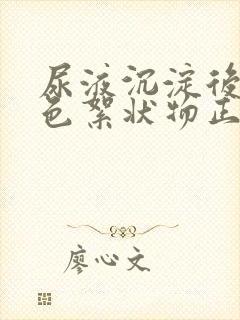 尿液沉淀後
色絮狀物正
廖心文